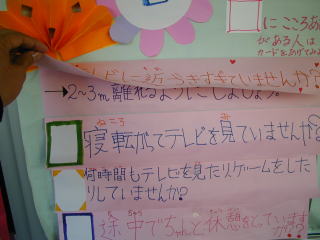 にこころあ
がある人は
カードをあげてみ
テレビに近づきすぎていませんか?
→2~3m離れるようにしましょう。
寝転がってテレビを見ていませんか?
ねころ
み
何時間もテレビを見たりゲームをした
りしていませんか?
途中でちゃんと休憩をとっています
か?